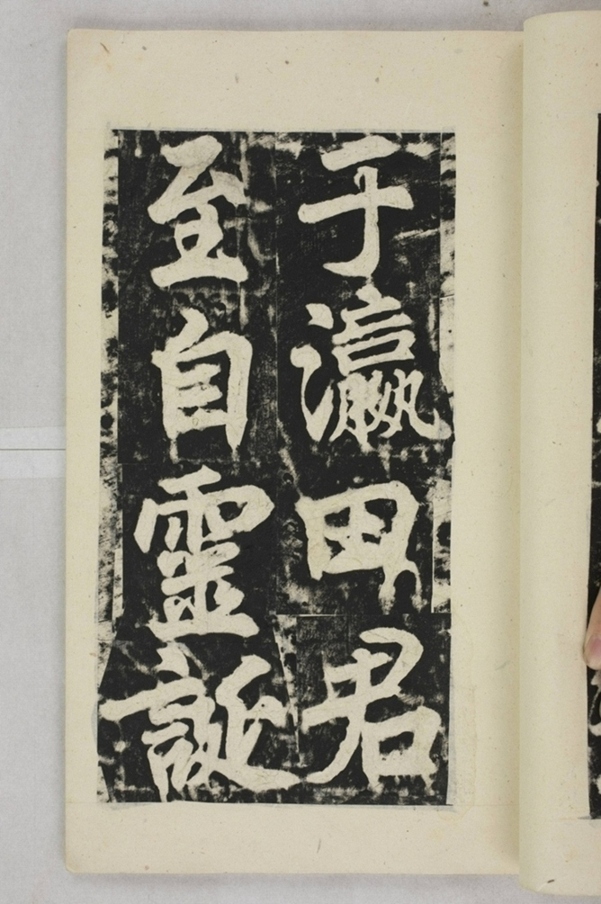 于瀛田君
至自靈誕